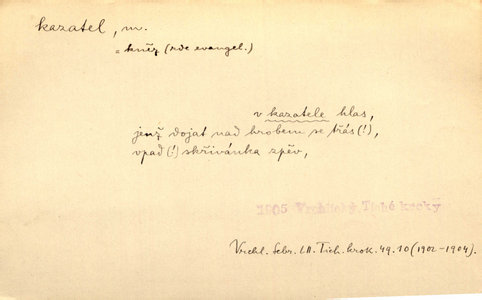 kazatel, m.
kněz (zde evangel.)
v kazatele hlas,
jenž dojat nad hrobem se třás(!),
vpad(!) skřivánka zpěv,
1905 Vrchlický, Tiché kroky
Vrchl. Sebr. LII. Tich. krok. 49. 10 (1902-1904).